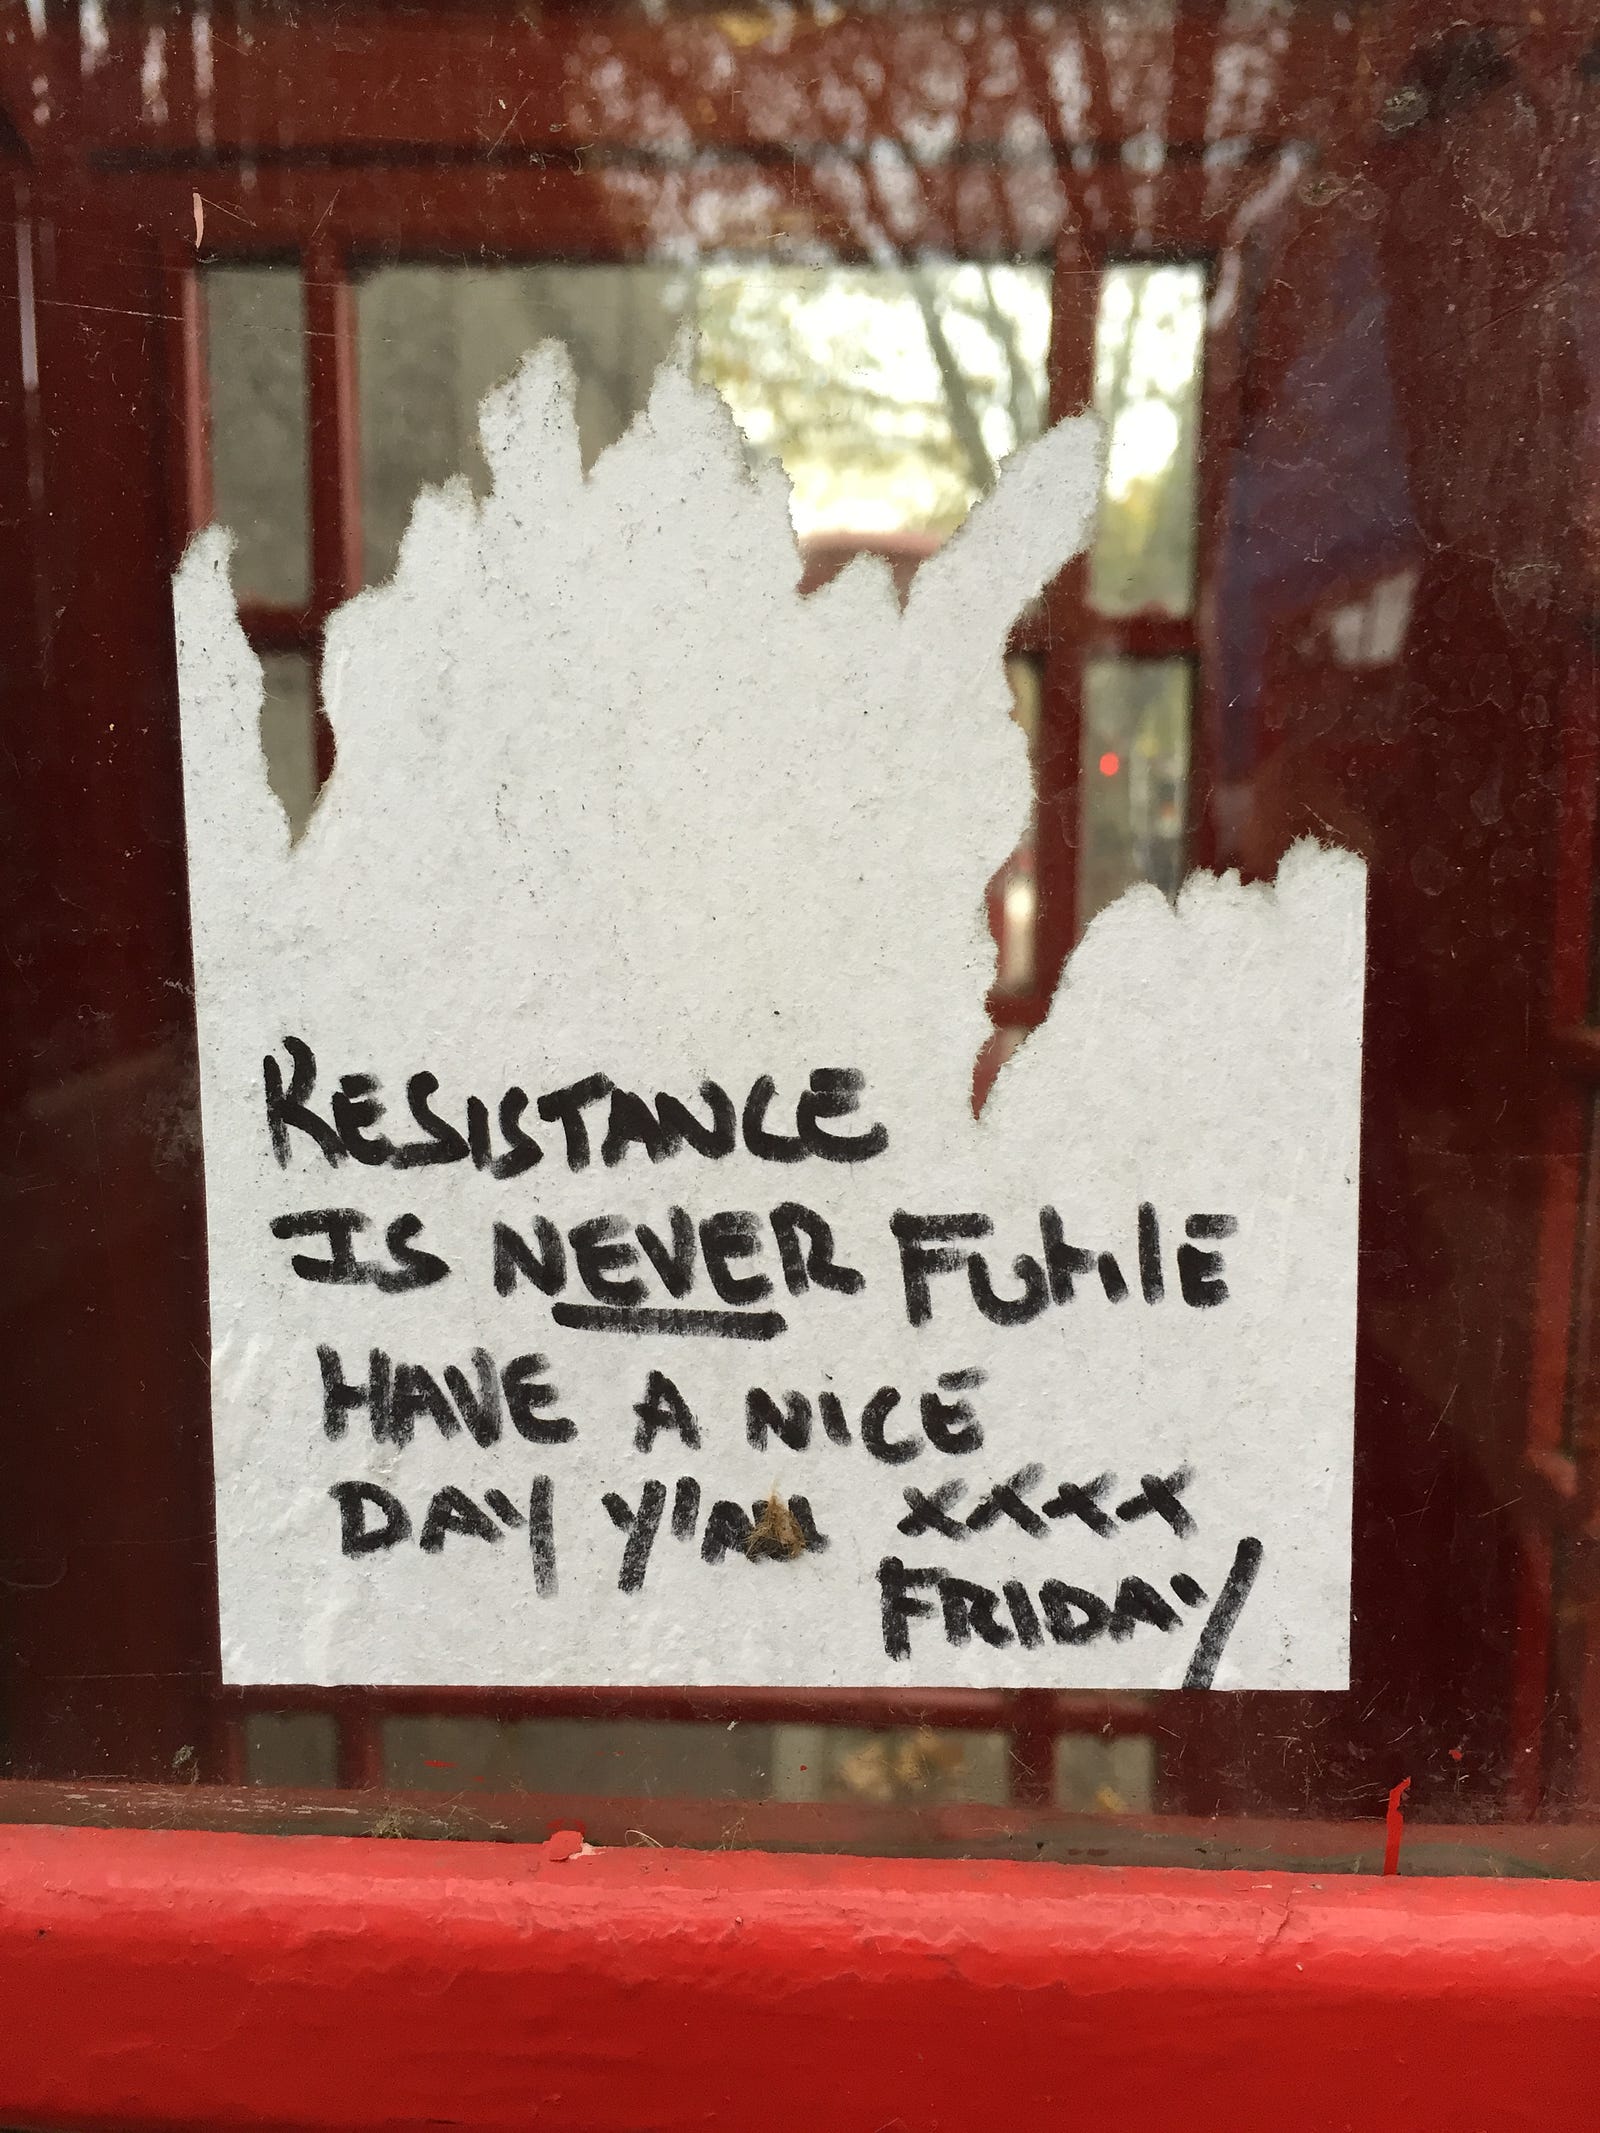 RESISTANCE
IS NEVER FUtiLE
HAVE A NICE
DAY Y'ALL xxxx
FRIDAY